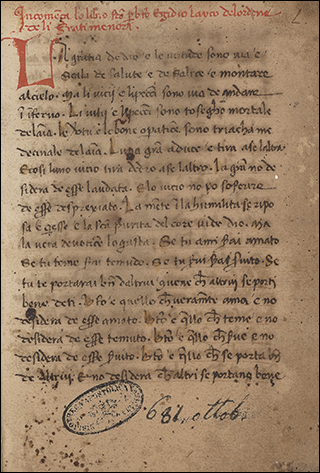 Incomenca lo libro
de li frati menori
La gratia de dio e le vertude sono via e
scala de salute e de salire e montare
al cielo. Ma li vicii e li peccti sono via de andare
i iferno. Li vitii e li peccti sono tosegho mortale
delaia. le vertu e le bone opatiōe sono triacha me
decinale delaīa. Luna grā aduce e tira a se laltra
E cosi luno vicio tira drieto a se laltro. La grā no de
sidera de esser laudata. E lo vicio no po soferire
de esser desprexiato. La mēte i la humilita se ripo
sa la sua puritа del core vide dio. Ma
la vera devotiōe lo gusta. Se tu ami sarai amato
Se tu teme sarai temudo. Se tu servi sarai servito. Se
tu te portarai bñ daltrui quene ch altrui se porti
bene de ti. Bto e quello ch veramte ama e no
desidera de esser amato. Bto e qllo ch teme e no
desidera de esser temuto. Bto e qllo ch sve e no
desidera de esser svito. Bto e qllo ch se porta bñ
de altrui. E no desidera ch altri se portano bene
681. ottob.